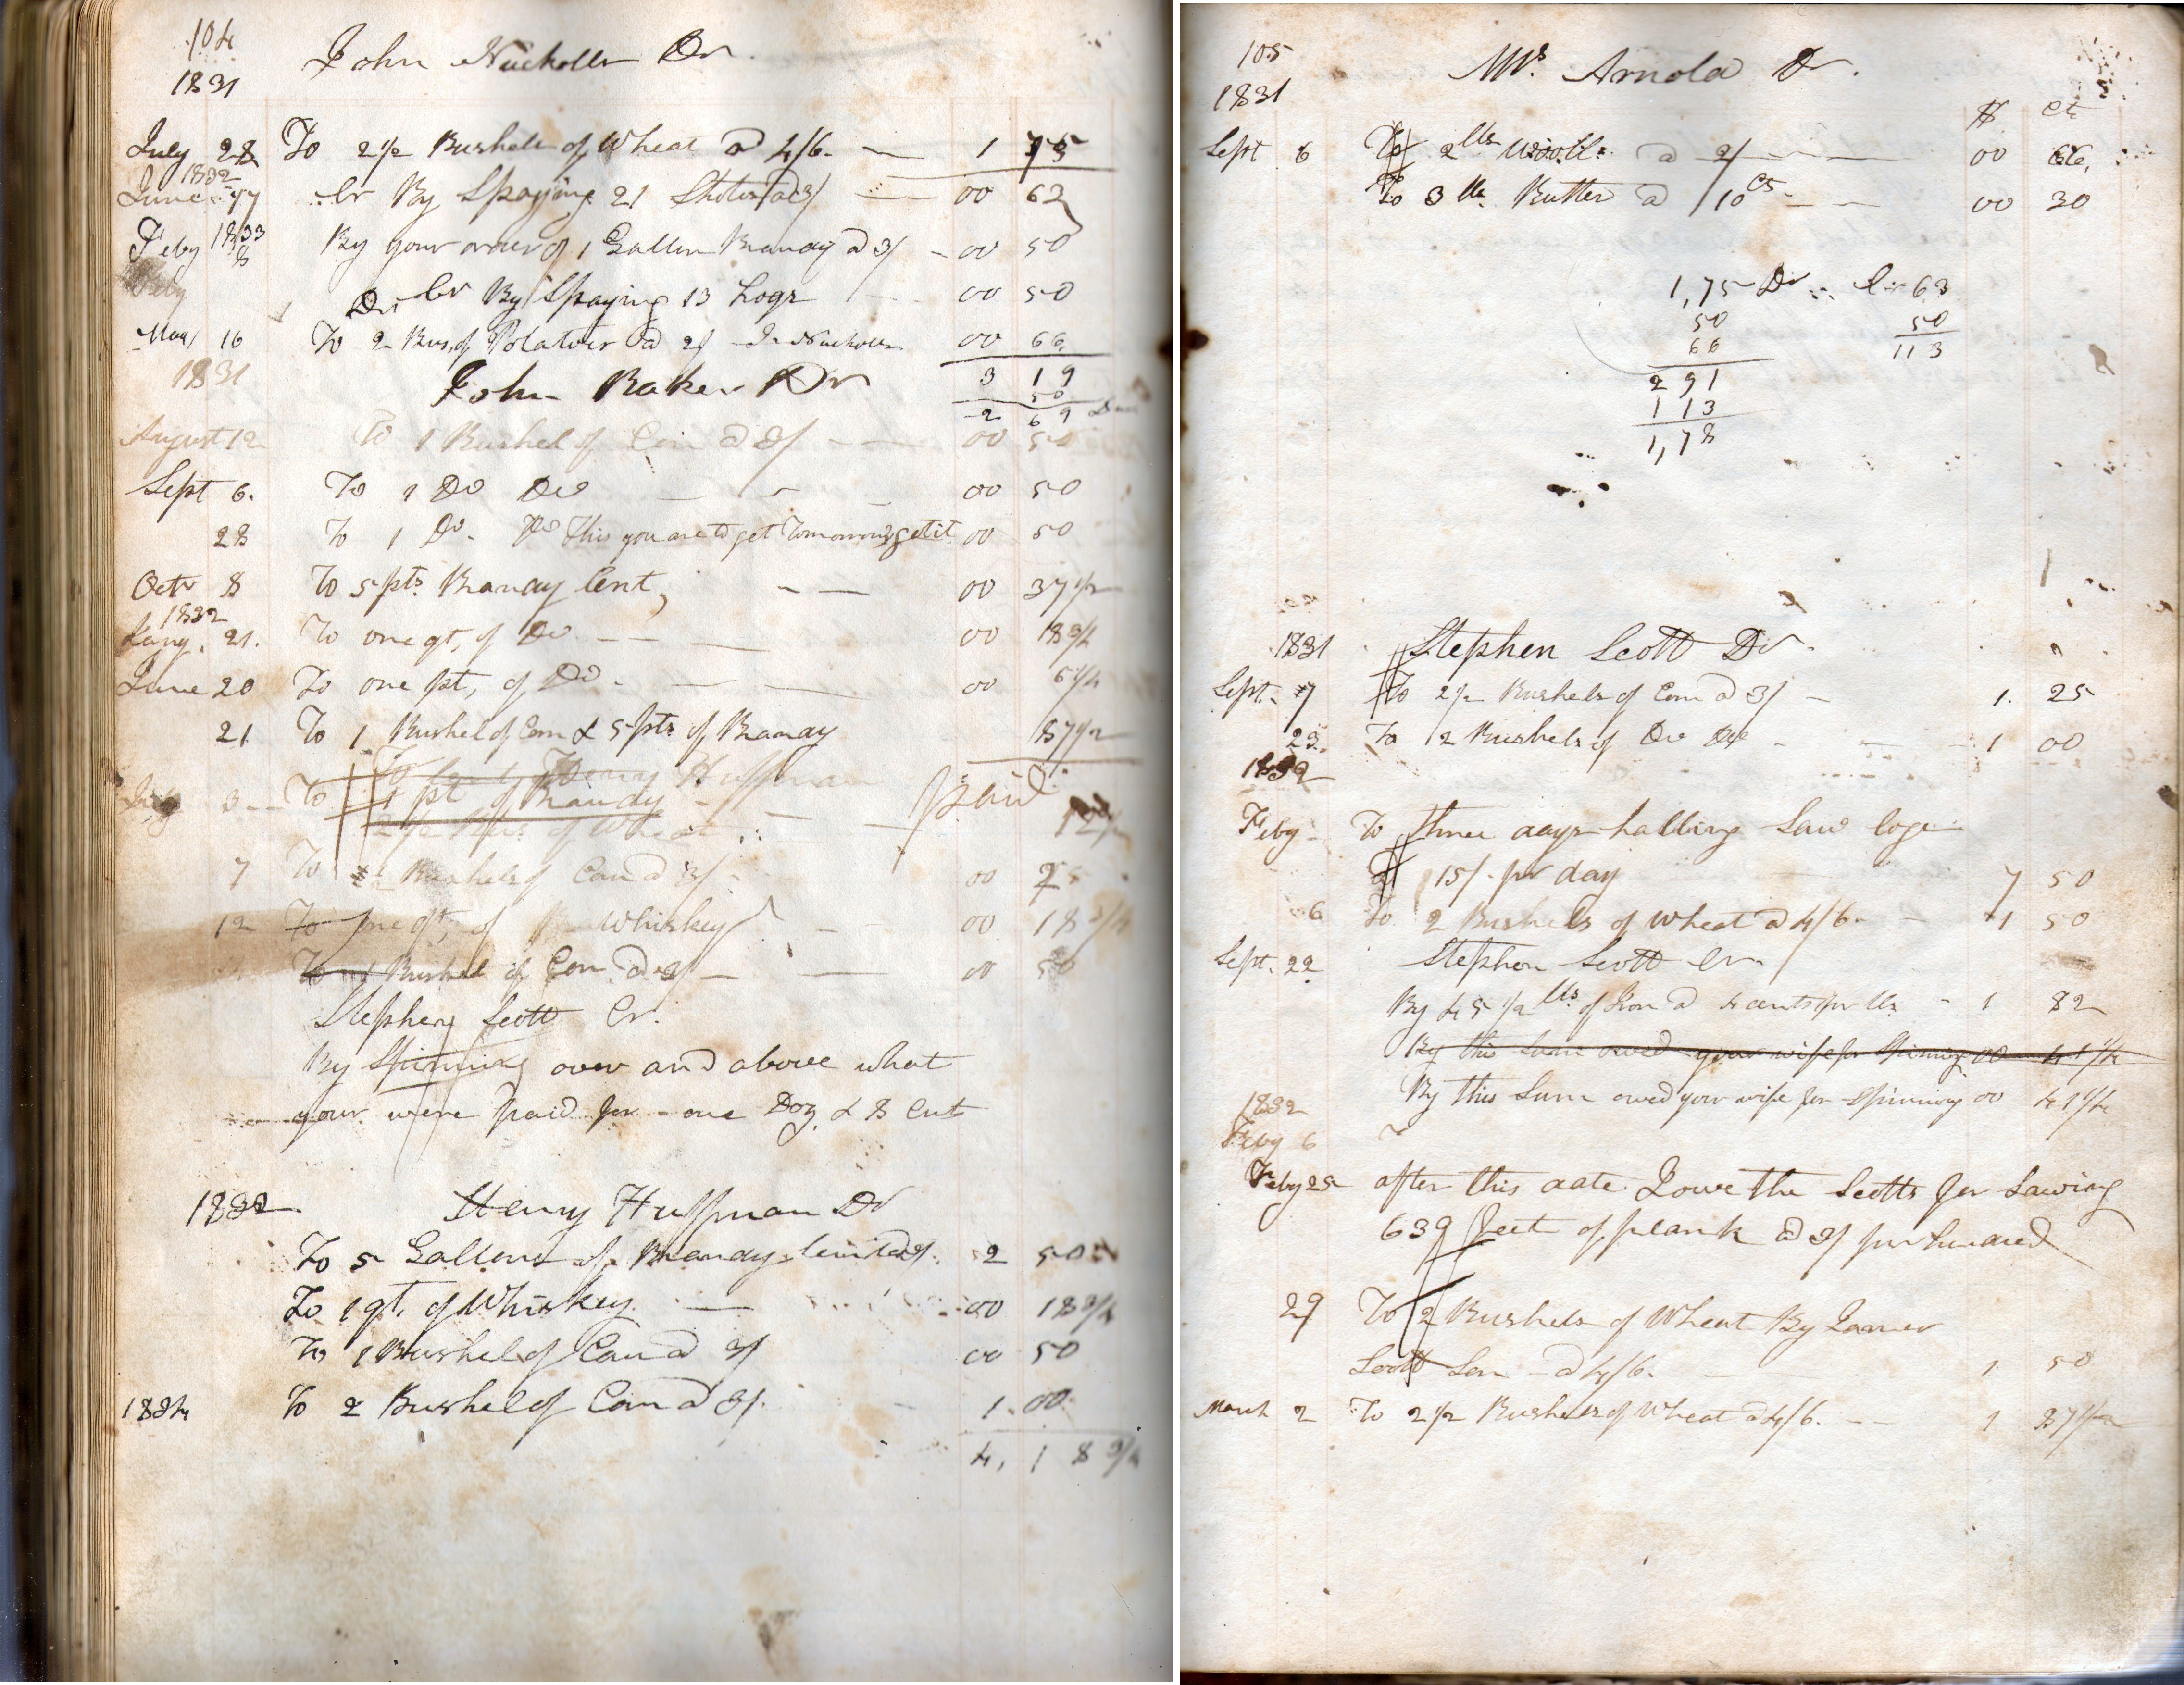 104
1831
John Nucholls Dr.
July 28 To 2 1/2 Bushels of Wheat a 4/6 1 75
1832
June 47 Cr By Spaying 21 Shotes a 3/ 00 62
1833
Feby 8 By your order of 1 Gallon Brandy a 3/ 00 50
Feby
Dr Cr By Spaying 13 hogs 00 50
May 16 To 2 Bus. of Potatoes a 2/ J. Nucholls 00 66
1831 John Baker Dr 3 19
50
2 69
August 12 To 1 Bushel of Corn a 3/ 00 50
Sept 6. To 1 Do Do 00 50
28 To 1 Do. Do This you are to get Tomorrow, get it 00 50
Octr 8 To 5 pts Brandy Cent, 00 37 1/2
1832
Jany. 21. To one qt, of Do 00 18 3/4
June 20 To one pt, of Do. 00 6 1/4
21 To 1 Bushel of Corn & 5 pts of Brandy 87 1/2
Henry Huffman
July 3 To 1 pt of Brandy paid 12 1/2
2 1/2 Bus. of Wheat
7 To 1/2 Bushels of Corn a 3/ 00 25
12 To one qt, of Whiskey 00 18 3/4
To Bushel of Corn a 3/ 00 50
Stephen Scott Cr.
By Spinning over and above what
your were paid for one Doz. & 8 Cut
1832 Henry Huffman Dr
To 5 Gallons of Brandy 2 50
To 1 qt. of Whiskey. 00 18 3/4
To 1 Bushel of Corn a 3/ 00 50
1834 To 2 Bushel of Corn a 3/. 1.00
4, 18 3/4
105
1831
Mrs. Arnold Dr.
$ Cts
Sept 6 To 2 lbs Wooll a 2/ 00 66
To 3 lb. Butter a 10 cts 00 30
1,75 Dr Cr 63
50 50
66 113
2 91
1 13
1,78
1831 Stephen Scott Dr.
Sept. 7 To 2 1/2 Bushels of Corn a 3/ 1. 25
23. To 2 Bushels of Do Do 1 00
1832
Feby To three days halling Saw logs
a 15/. pr day 7 50
6 To 2 Bushels of Wheat a 4/6. 1 50
Sept. 22 Stephen Scott Cr.
By 45 1/2 lbs of Iron a 4 cents pr lb. 1 82
By this sum owed your wife for Spinning 00 41 1/4
By this Sum owed your wife for Spinning 00 41 1/4
1832
Feby 6
Feby 25 after this date I owe the Scotts for Sawing
639 feet of plank a 3/ pr hundred
29 To 2 Bushels of Wheat By James
Scott Son a 4/6. 1 50
March 2 To 2 1/2 Bushels of Wheat a 4/6. 1 87 1/2